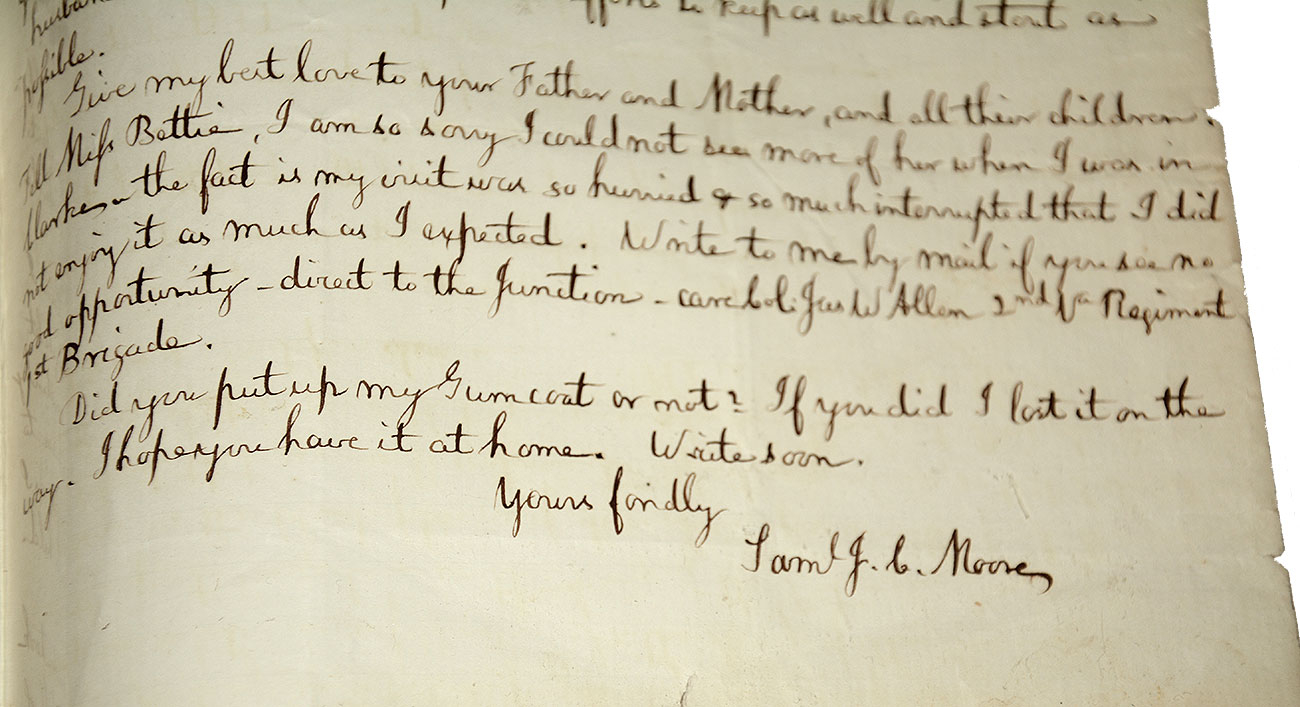 husban
to keep as well and stout as
possible.
Give my best love to your Father and Mother, and all their children.
Tell Miss Bettie, I am so sorry I could not see more of her when I was in
Clarke - the fact is my visit was so hurried & so much interrupted that I did
not enjoy it as much as I expected. Write to me by mail if you see no
good opportunity - direct to the Junction - care Col. Jas W Allen 2nd Va Regiment
1st Brigade.
Did you put up my Gum coat or not? If you did I lost it on the
way. I hope you have it at home. Write soon.
Yours fondly
Saml J. C. Moore